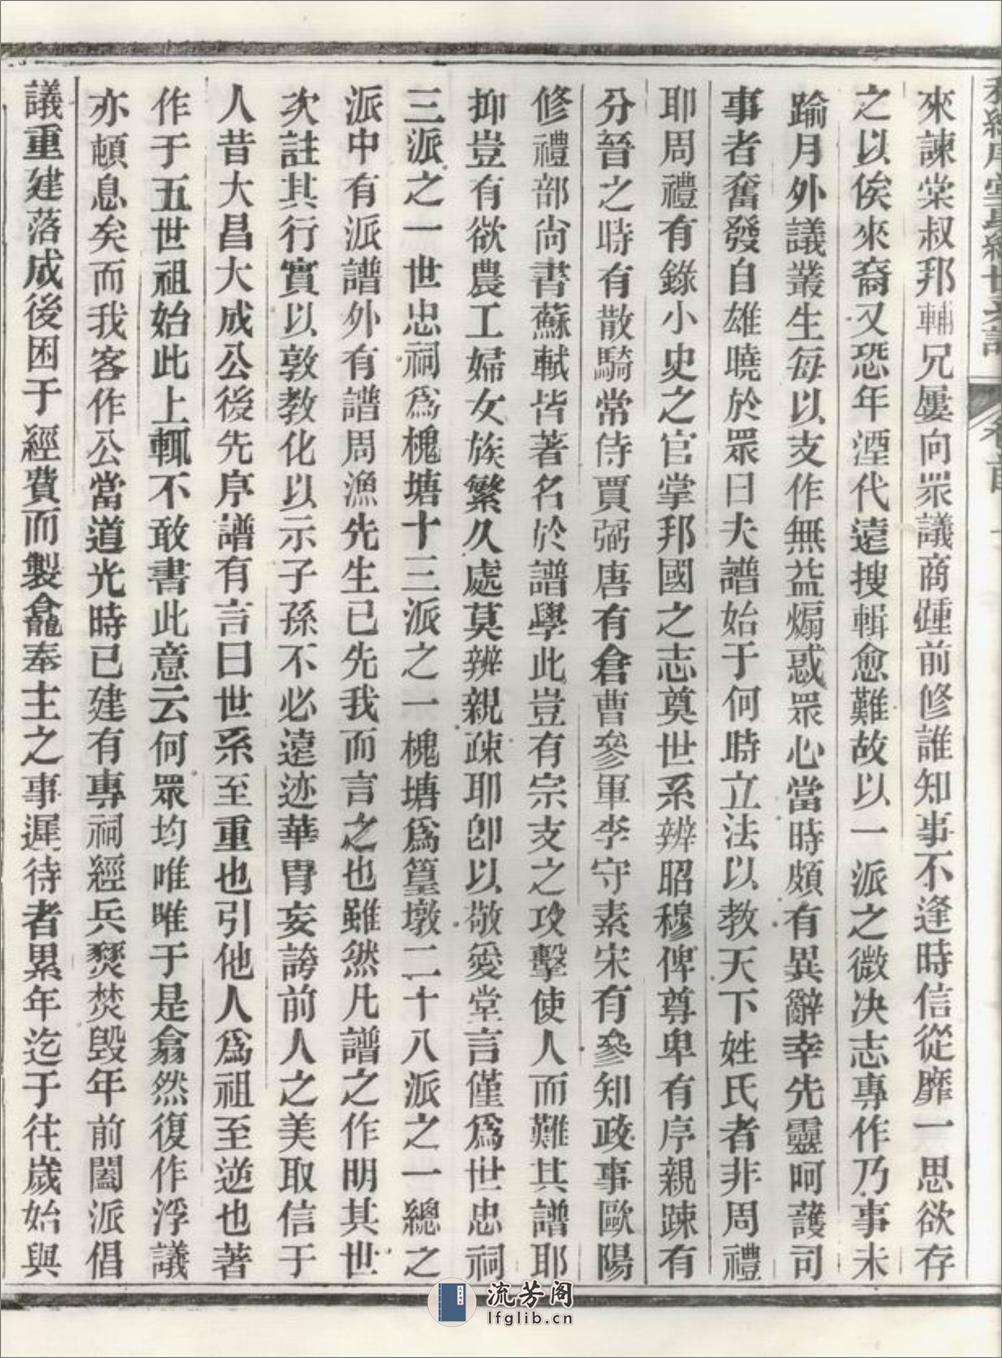 來諫棠叔邦輔兄屢向眾議商踵前修誰知事不逢時信從靡一思欲存
之以俟來裔又恐年湮代遠搜輯愈難故以一派之微决志專作乃事未
踰月外議叢生每以支作無益煽惑眾心當時頗有異辭幸先靈呵護司
事者奮發自雄曉於眾曰夫譜始于何時立法以教天下姓氏者非周禮
耶周禮有錄小史之官掌邦國之志奠世系辨昭穆俾尊卑有序親踈有
分晉之時有散騎常侍賈弼唐有倉曹參軍李守素宋有參知政事歐陽
修禮部尚書蘇軾皆著名於譜學此豈有宗支之攻擊使人而難其譜耶
抑豈有欲農工婦女族繁久處莫辨親疎耶卽以敬愛堂言僅爲世忠祠
三派之一世忠祠爲槐塘十三派之一槐塘爲篁墩二十八派之一總之
派中有派譜外有譜周漁先生已先我而言之也雖然凡譜之作明其世
次註其行實以敦教化以示子孫不必遠迹華胄妄誇前人之美取信于
人昔大昌大成公後先序譜有言曰世系至重也引他人爲祖至逆也著
作于五世祖始此上輒不敢書此意云何眾均唯唯于是翕然復作浮議
亦頓息矣而我客作公當道光時已建有專祠經兵燹焚毀年前闔派倡
議重建落成後困于經費而製龕奉主之事遲待者累年迄于往歲始與
流芳阁
lfglib.cn